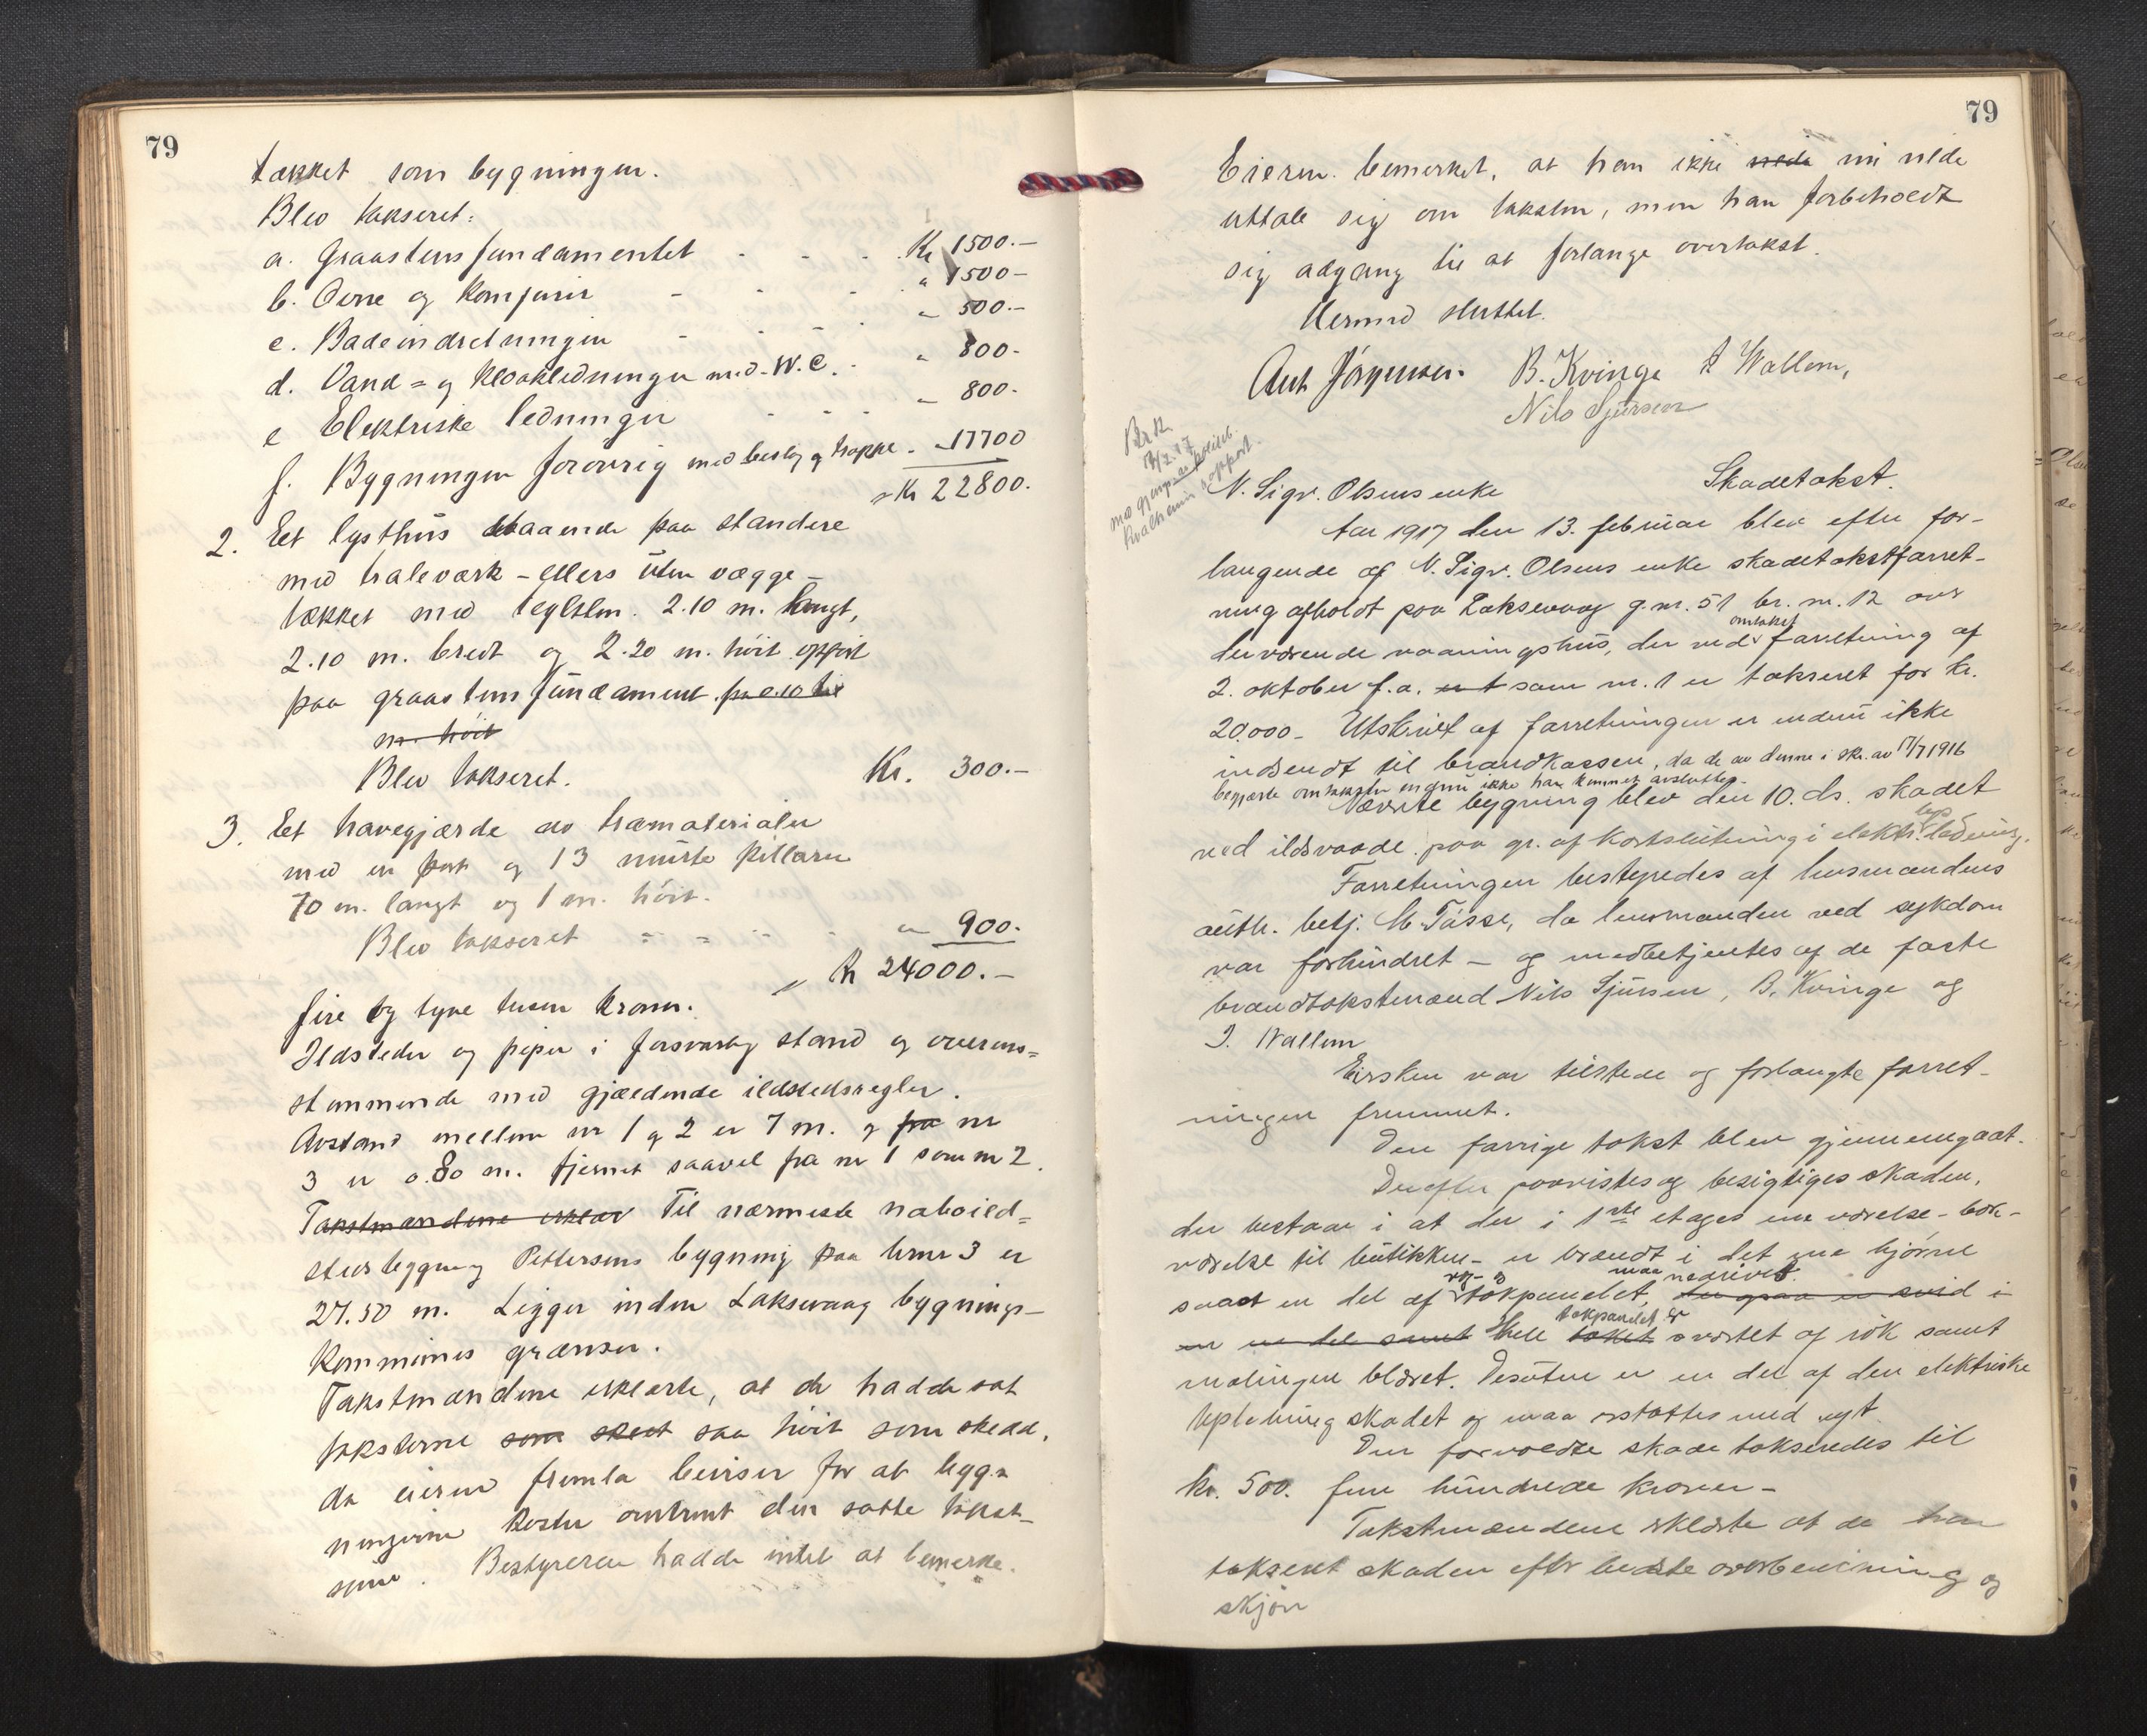 79
takket som bygningen.
Blev takseret:
a. Graastensfundamentet - - - Kr 1500.-
b. Ovne og Komfurer - - - " 1500-
c. Badeindretningen - - - " 500.-
d. Vand- og Kloakledninger med W.C. - " 800-
e Elektriske ledninger - - - " 800-
f. Bygningen forøvrig med beslag og trappe - " 17700
Kr 22800.-
2. Et lysthus staaende paa standere
med traleværk - ellers uten vægge -
tækket med teglsten. 2.10 m. langt,
2.10 m. bredt og 2.20 m. høit opført
paa graastensfundament
m. høit
Blev takseret. Kr. 300.-
3. Et havegjærde av træmaterialer
med en port og 13 murte pillarer
70 m. langt og 1 m. høit.
Blev takseret - - - " 900.-
Kr 24000.-
fire og tyve tusen kroner.
Ildsteder og piper i forsvarlig stand og overens-
stemmende med gjældende ildstedsregler.
Avstand mellem nr 1 og 2 er 7 m. og fra nr
3 er 0.80 m. fjernet saavel fra nr 1 som nr 2.
Takstmændene erklær Til nærmeste naboild-
stedsbygning Pettersens bygning paa brnr 3 er
27.50 m. Ligger inden Laksevaag bygnings-
kommunes grænser.
Takstmændene erklærte, at de hadde sat
taksterne som skeet saa høit som skedd,
da eieren fremla beviser for at bygn-
ningerne koster omtrent den satte takst-
sum. Bestyreren hadde intet at bemerke.
79
Eieren bemerket, at han ikke nu vilde
uttale sig om taksten, men han forbeholdt
sig adgang til at forlange overtakst.
Hermed sluttet.
Ant Jørgensen. B. Kvinge I Wallem,
Nils Sjursen
N. Sigv. Olsens enke Skadetakst.
Aar 1917 den 13. februar blev efter for-
langende af N. Sigv. Olsens enke skadetakstforret-
ning afholdt paa Laksevaag g.nr. 51 br. nr. 12 over
omtakst
derværende vaaningshus, der ved forretning af
2. oktober f.a. som nr. 1 er takseret for kr.
20.000- Utskrift af forretningen er endnu ikke
indsendt til brandkassen, da de av denne i skr. av 17/7 1916
begjærte omtakster endnu ikke har kunnet avsluttes.
Nævnte bygning blev den 10. ds. skadet
lys
ved ildsvaade paa gr. af kortslutning i elektr. ledning.
Forretningen bestyredes af lensmandens
auth. betj. M. Tøsse, da lensmanden ved sykdom
var forhindret - og medbetjentes af de faste
brandtakstmænd Nils Sjursen, B. Kvinge og
I. Wallem
Eiersken var tilstede og forlangte forret-
ningen fremmet.
Den forrige takst blev gjennemgaat.
Derefter paavistes og besigtiges skaden,
der bestaar i at der i 1ste etages ene værelse - bak-
værelse til butikken - er brændt i det ene hjørne
maa nedrives.
saa at en del af takpanelet, i
takpanelet er
en en del samt hele taket sværtet af røk samt
malingen blæret. Desuten er en del af den elektriske
lysledning skadet og maa erstattes med nyt
Den forvoldte skade takseredes til
kr. 500. fem hundrede kroner -
Takstmændene erklærte at de har
takseret skaden efter bedste overbevisning og
skjøn